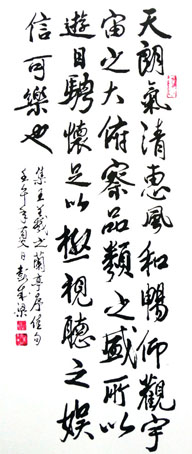 天朗氣清惠風和暢仰觀宇
宙之大俯察品類之盛所以
遊目騁懷足以極視聽之娛
信可樂也
集王羲之蘭亭序佳句
午年夏日